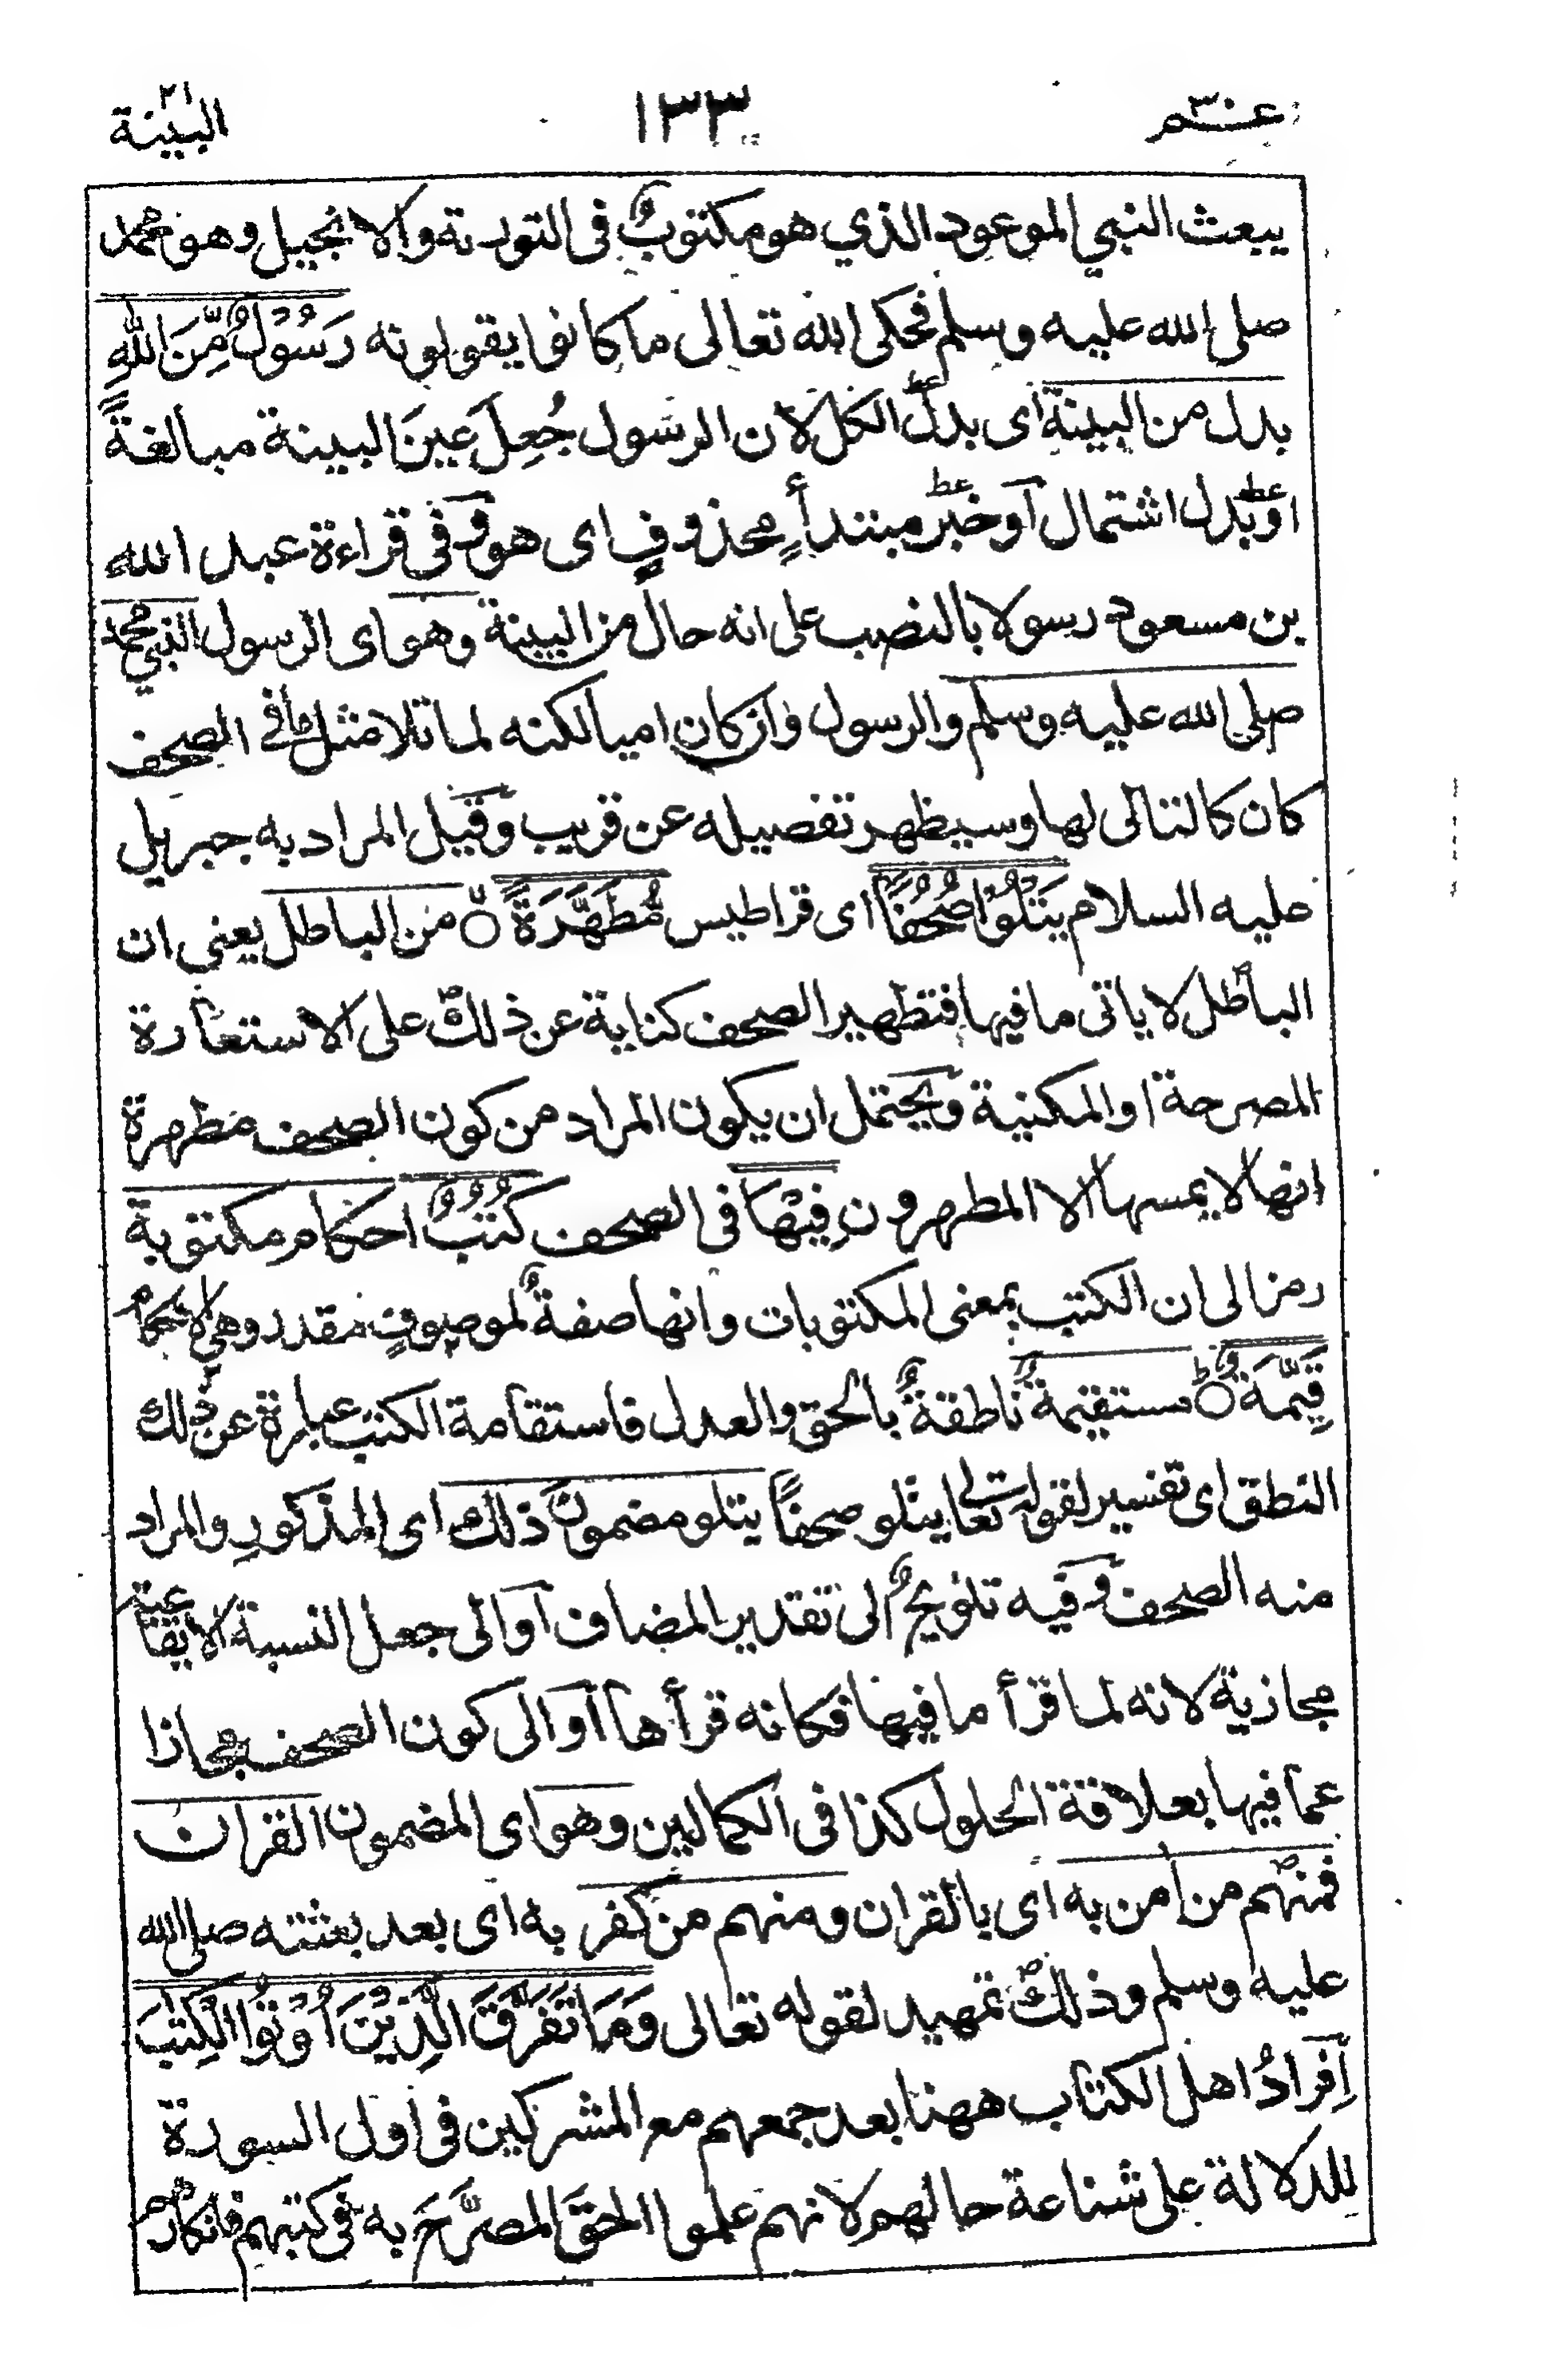 عـم ٣٠ ١٣٣ البينة ٢١
يبعث النبي الموعود الذي هو مكتوبٌ فى التورىة والانجيل وهو محمد
صلى الله عليه وسلم فحكى الله تعالى ما كانوا يقولونه رَسُوْلٌ مِّنَ اللّٰهِ
بدل من البينة اى بدل الكل لان الرسول جُعِلَ عينَ البينة مبالغةً
او بدل اشتمال او خبر مبتدأٍ محذوفٍ اى هو وفى قراءة عبد الله
بن مسعود رسولا بالنصب على انه حال من البينة وهو اى الرسول النبي محمد
صلى الله عليه وسلم والرسول وان كان اميا لكنه لما تلا مثل ما فى الصحف
كان كالتالى لها وسيظهر تفصيله عن قريب وقيل المراد به جبريل
عليه السلام يَتْلُوْا صُحُفًا اى قراطيس مُّطَهَّرَةً من الباطل يعنى ان
الباطل لا ياتى ما فيها فتطهير الصحف كناية عن ذلك على الاستعارة
المصرحة او المكنية ويحتمل ان يكون المراد من كون الصحف مطهرة
انها لا يمسها الا المطهرون فِيْهَا فى الصحف كُتُبٌ احكام مكتوبة
رمز الى ان الكتب بمعنى المكتوبات وانها صفةٌ لموصوفٍ مقدر وهى الاحكام
قَيِّمَةٌ مستقيمة ناطقةٌ بالحق والعدل فاستقامة الكتب عبارة عن ذلك
النطق اى تفسير لقوله تعالى يتلو صحفًا يتلو مضمون ذلك اى المذكورِ والمراد
منه الصحف وفيه تلويحٌ الى تقدير المضاف او الى جعل النسبة الايقاعية
مجازية لانه لما قرأ ما فيها فكانه قرأها او الى كون الصحف مجازا
عما فيها بعلاقة الحلول كذا فى الكمالين وهو اى المضمون القران
فمنهم من امن به اى بالقران ومنهم من كفر به اى بعد بعثته صلى الله
عليه وسلم وذلك تمهيد لقوله تعالى وَمَا تَفَرَّقَ الَّذِيْنَ اُوْتُوا الْكِتٰبَ
اِفرادُ اهل الكتاب ههنا بعد جمعهم مع المشركين فى اول السورة
للدلالة على شناعة حالهم لانهم علموا الحقَّ المصرَّحَ به فى كتبهم فانكارهم